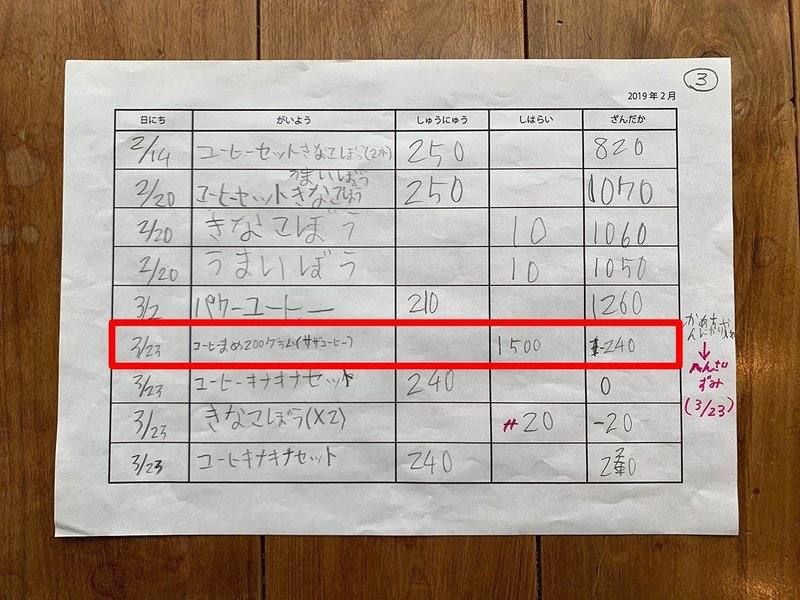 ③
2019年2月
日にち がいよう しゅうにゅう しはらい ざんだか
2/14 コーヒーセットきなこぼう(2本) 250 820
うまいぼう
2/20 コーヒーセットきなこぼう 250 1070
2/20 きなこぼう 10 1060
2/20 うまいぼう 10 1050
3/2 パワーコート 210 1260
3/23 コーヒーまめ200グラム(サザコーヒー) 1500 -240
3/23 コーヒーキナキナセット 240 0
3/23 きなこぼう(X2) 20 -20
3/23 コーヒーキナキナセット 240
↓
へんさい
ずみ
(3/23)